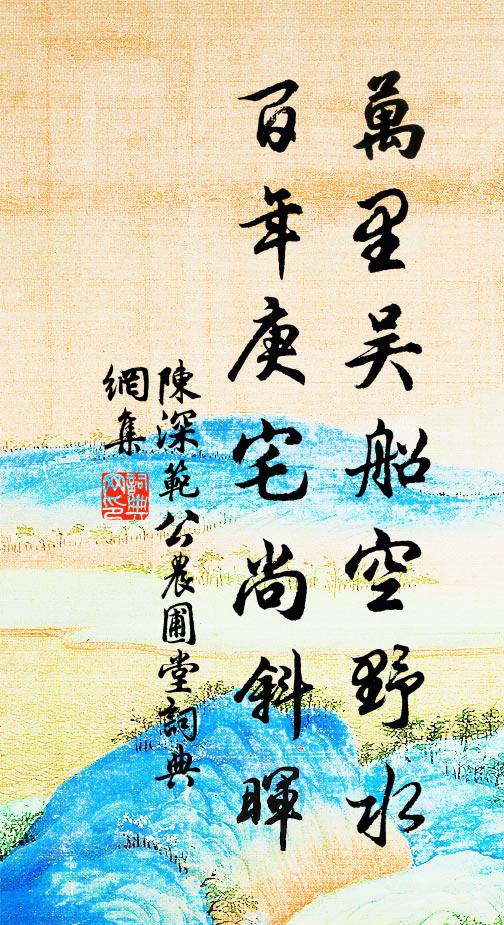 萬里吴船空野水
百年庚宅尚斜暉
陳深範公農圃堂詞典
網集
詞典